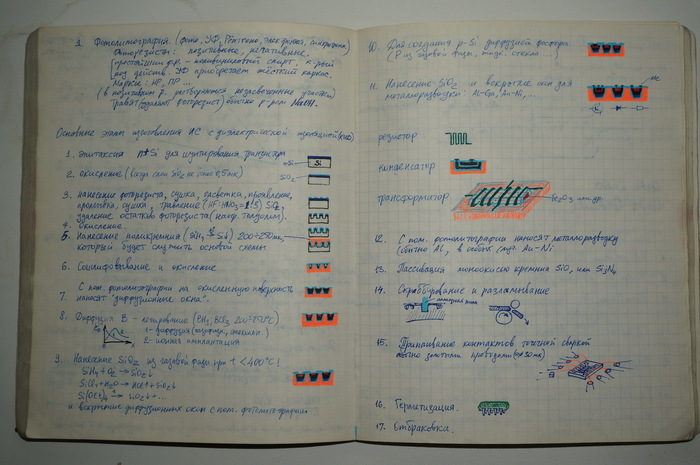 1. Фотолитография. (Фото, УФ, Рентгено, электронная, синхротрон)
Фоторезисты: позитивные, негативные.
Простейший ф.р. – поливиниловый спирт, к-рый
под действ. УФ приобретает жёсткий каркас.
Марки: НР, ПР ...
(в позитивном р. растворяются незасвеченные участки)
Травят (удаляют фоторезист) обычно р-ром NaOH.
Основные этапы изготовления ИС с диэлектрической изоляцией
1. Эпитаксия n+Si для шунтирования транзистора
n+Si
Si
2. окисление (когда слой SiO2 не более 0,5 мк)
SiO2
3. нанесение фоторезиста, сушка, засветка, проявление,
промывка, сушка, травление (HF:HNO3=1:3) SiO2,
удаление остатков фоторезиста (напр. толуолом).
4. окисление.
5. Нанесение поликремния (SiH4 → Si↓) 200÷250мк,
который будет служить основой схемы
6. Сошлифовывание и окисление
7. С пом. фотолитографии на окисленную поверхность
наносят "диффузионные окна".
8. Диффузия B – легирование
1 - диффузия
2 - ионная имплантация
9. Нанесение SiO2 из газовой фазы при t < 400°C:
SiH4 + O2 → SiO2↓
SiCl4 + H2O → HCl↑ + SiO2↓
Si(OEt)4 → SiO2↓ + ...
и вскрытие диффузионных окон с пом. фотолитографии
10. Для создания p-Si диффузией фосфора.
(P из газовой фазы, тв.ф. стекло ...)
11. Нанесение SiO2 и вскрытие окн для
металлоразводки: Al-Ga, Au-Ni, ...
Me
резистор
конденсатор
трансформатор
Fe2O3 или др.
12. С пом. фотолитографии наносят металлоразводку
(обычно Al, в особых случ. Au-Ni
13. Пассивация моноокисью кремния SiO, или Si3N4
14. Скрайбирование и разламывание
алмазная пила
15. Припаивание контактов точечной сваркой
обычно золотыми проводами (⌀≈30мк)
16. Герметизация.
17. Отбраковка.